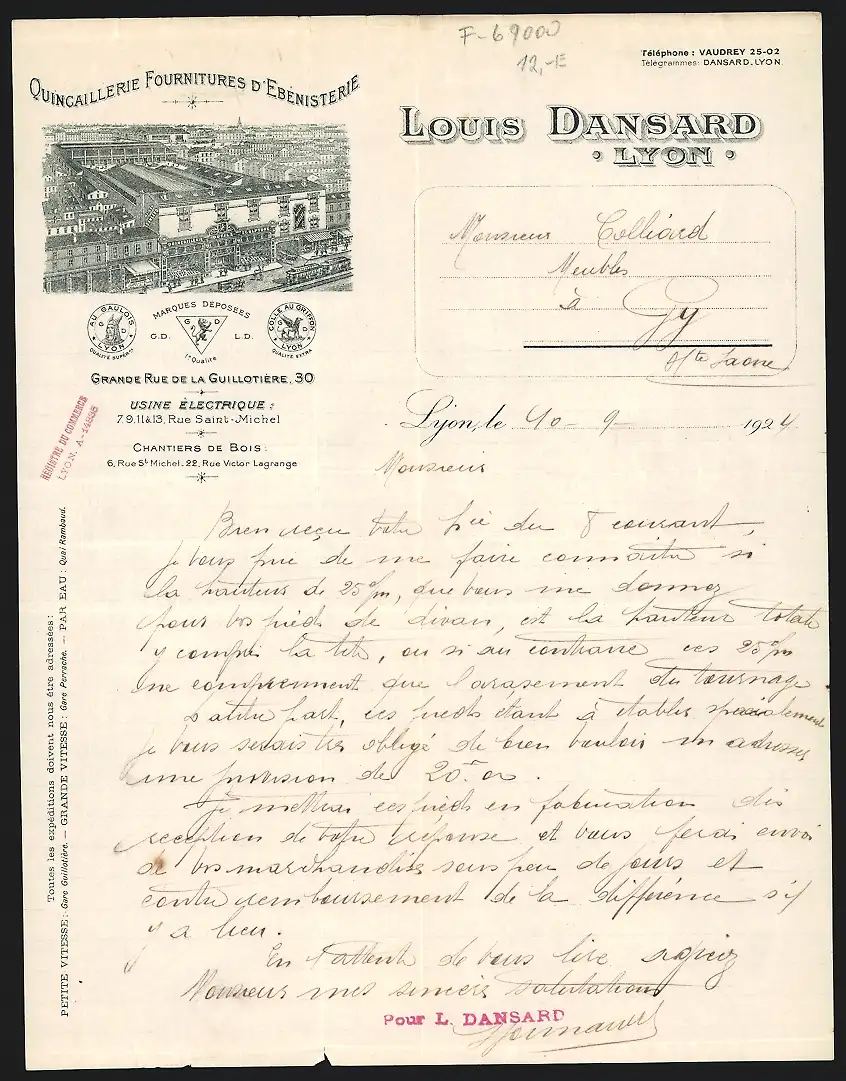 F-69000
12,-E
Téléphone : VAUDREY 25-02
Télégrammes: DANSARD.LYON
QUINCAILLERIE FOURNITURES D'EBÉNISTERIE
LOUIS DANSARD
LYON
Monsieur Colliard
Meubles
à Gy
Hte Saone
MARQUES DEPOSEES
AU GAULOIS
G D
LYON
QUALITÉ SUPERre
G.D. L.D.
G D
1re Qualité
COLLE AU GRIFFON
G D
LYON
QUALITÉ EXTRA
GRANDE RUE DE LA GUILLOTIÈRE, 30
USINE ÉLECTRIQUE :
7.9,11&13, Rue Saint-Michel
CHANTIERS DE BOIS :
6, Rue St Michel_22, Rue Victor Lagrange
REGISTRE DU COMMERCE
LYON. A-14896
Lyon, le 10 - 9 - 1924
Monsieur
Bien reçu votre du 8 courant,
je vous prie de me faire connaître si
la hauteur de 25 c/m, que vous me donnez
pour vos pieds de divan, est la hauteur totale
y compris la tête, ou si au contraire ces 25 c/m
ne comprennent que l'arasement du tournage
D'autre part, ces pieds étant à établir spécialement
je vous serais très obligé de bien vouloir m'adresser
une provision de 20.
Je mettrai ces pieds en fabrication dès
réception de votre réponse et vous ferai envoi
de vos marchandises sous peu de jours et
contre remboursement de la différence s'il
y a lieu.
En l'attente de vous lire agréez
Monsieur mes sincères salutations
Pour L. DANSARD
Toutes les expéditions doivent nous être adressées:
PETITE VITESSE: Gare Guillotière. — GRANDE VITESSE: Gare Perrache. — PAR EAU: Quai Rambaud.